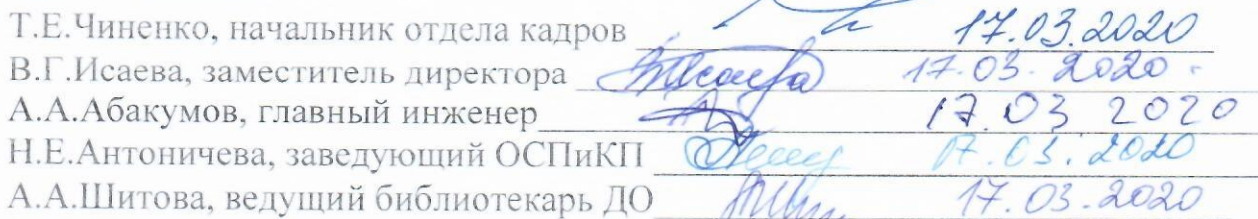 Т.Е.Чиненко, начальник отдела кадров 17.03.2020
В.Г.Исаева, заместитель директора 17.03.2020.
А.А.Абакумов, главный инженер 17.03 2020
Н.Е.Антоничева, заведующий ОСПиКП 17.03.2020
А.А.Шитова, ведущий библиотекарь ДО 17.03.2020